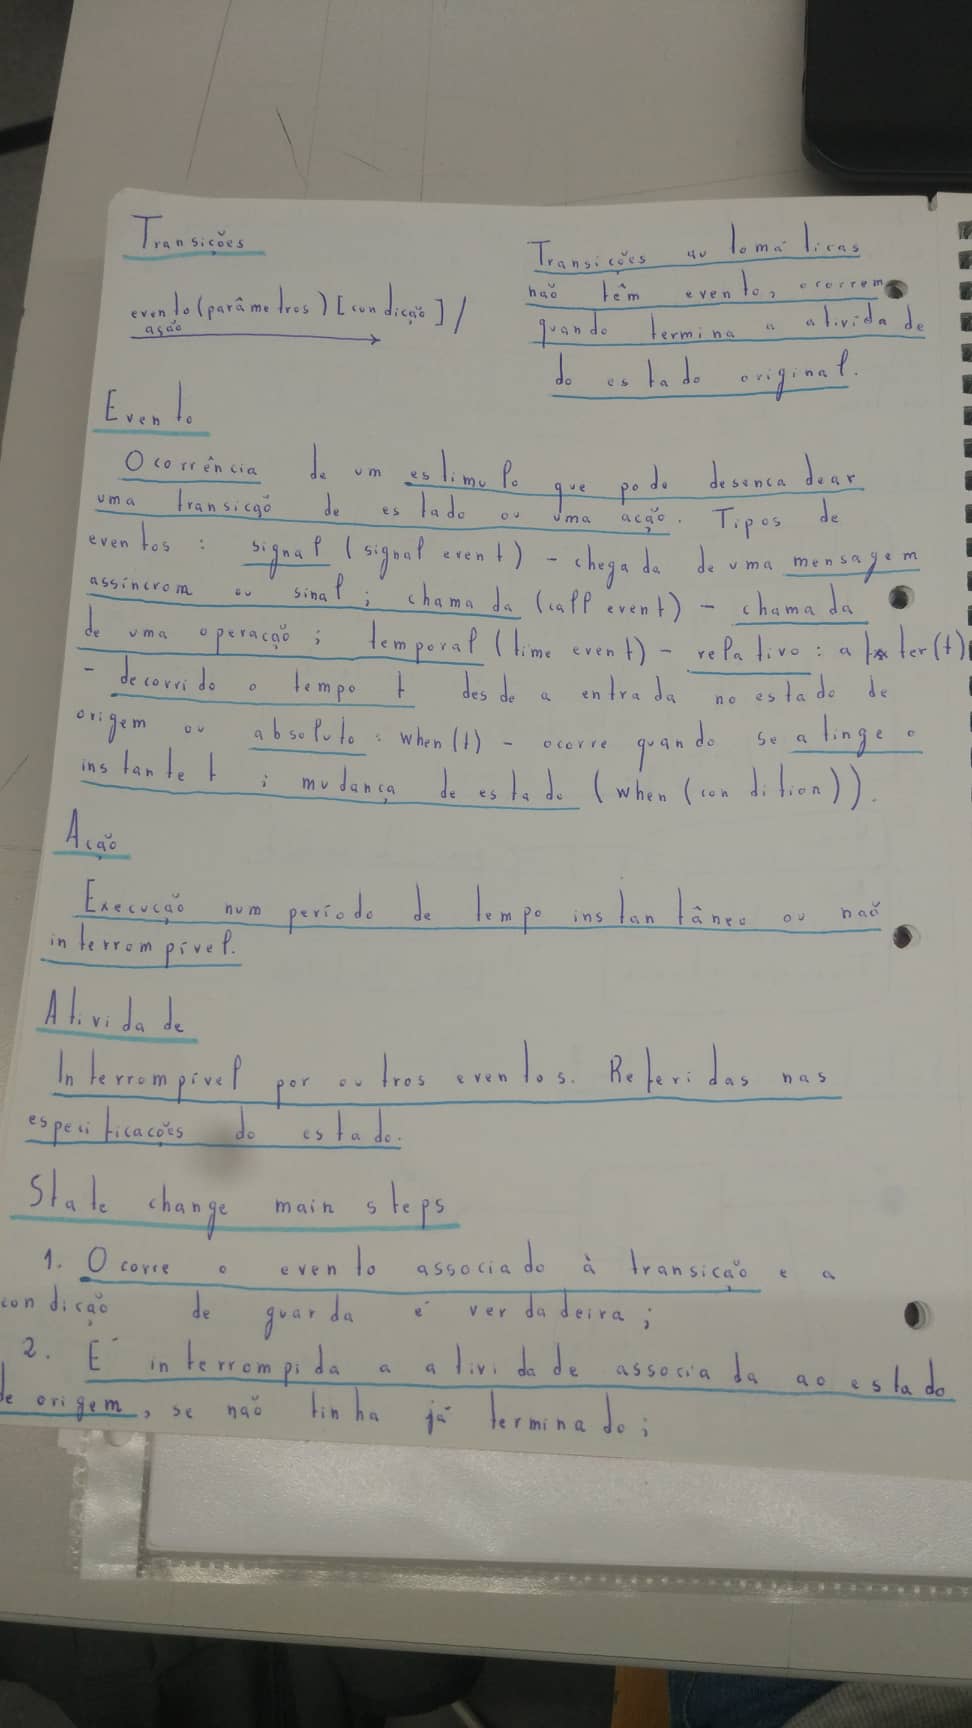 Transições
evento(parâmetros)[condição]/
ação
Transições automáticas
não têm evento, ocorrem
quando termina a atividade
do estado original.
Evento
Ocorrência de um estímulo que pode desencadear
uma transição de estado ou uma ação. Tipos de
eventos: signal (signal event) - chegada de uma mensagem
assíncrom ou sinal; chamada (call event) - chamada
de uma operação; temporal (time event) - relativo: after(t)
- decorrido o tempo t desde a entrada no estado de
origem ou absoluto: when(t) - ocorre quando se atinge o
instante t; mudança de estado (when(condition)).
Ação
Execução num período de tempo instantâneo ou não
interrompível.
Atividade
Interrompível por outros eventos. Referidas nas
especificações do estado.
State change main steps
1. Ocorre o evento associado à transição e a
condição de guarda é verdadeira;
2. É interrompida a atividade associada ao estado
de origem, se não tinha já terminado;